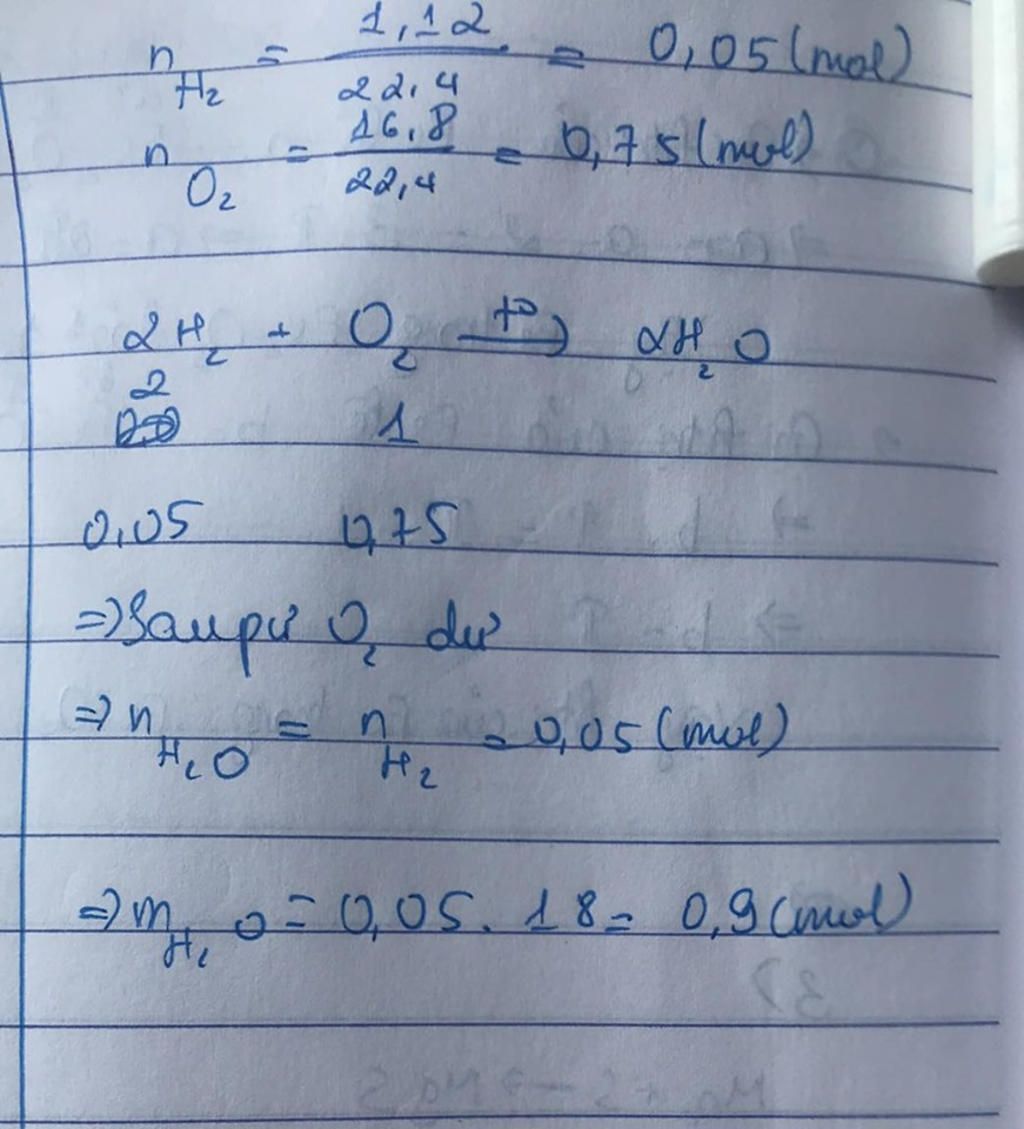 n H₂ = 1,12 / 22,4 = 0,05 (mol)
n O₂ = 16,8 / 22,4 = 0,75 (mol)
2H₂ + O₂ t° → 2H₂O
2 1
0,05 0,75
⇒ Sau pứ O₂ dư
⇒ n H₂O = n H₂ = 0,05 (mol)
⇒ m H₂O = 0,05 . 18 = 0,9 (mol)